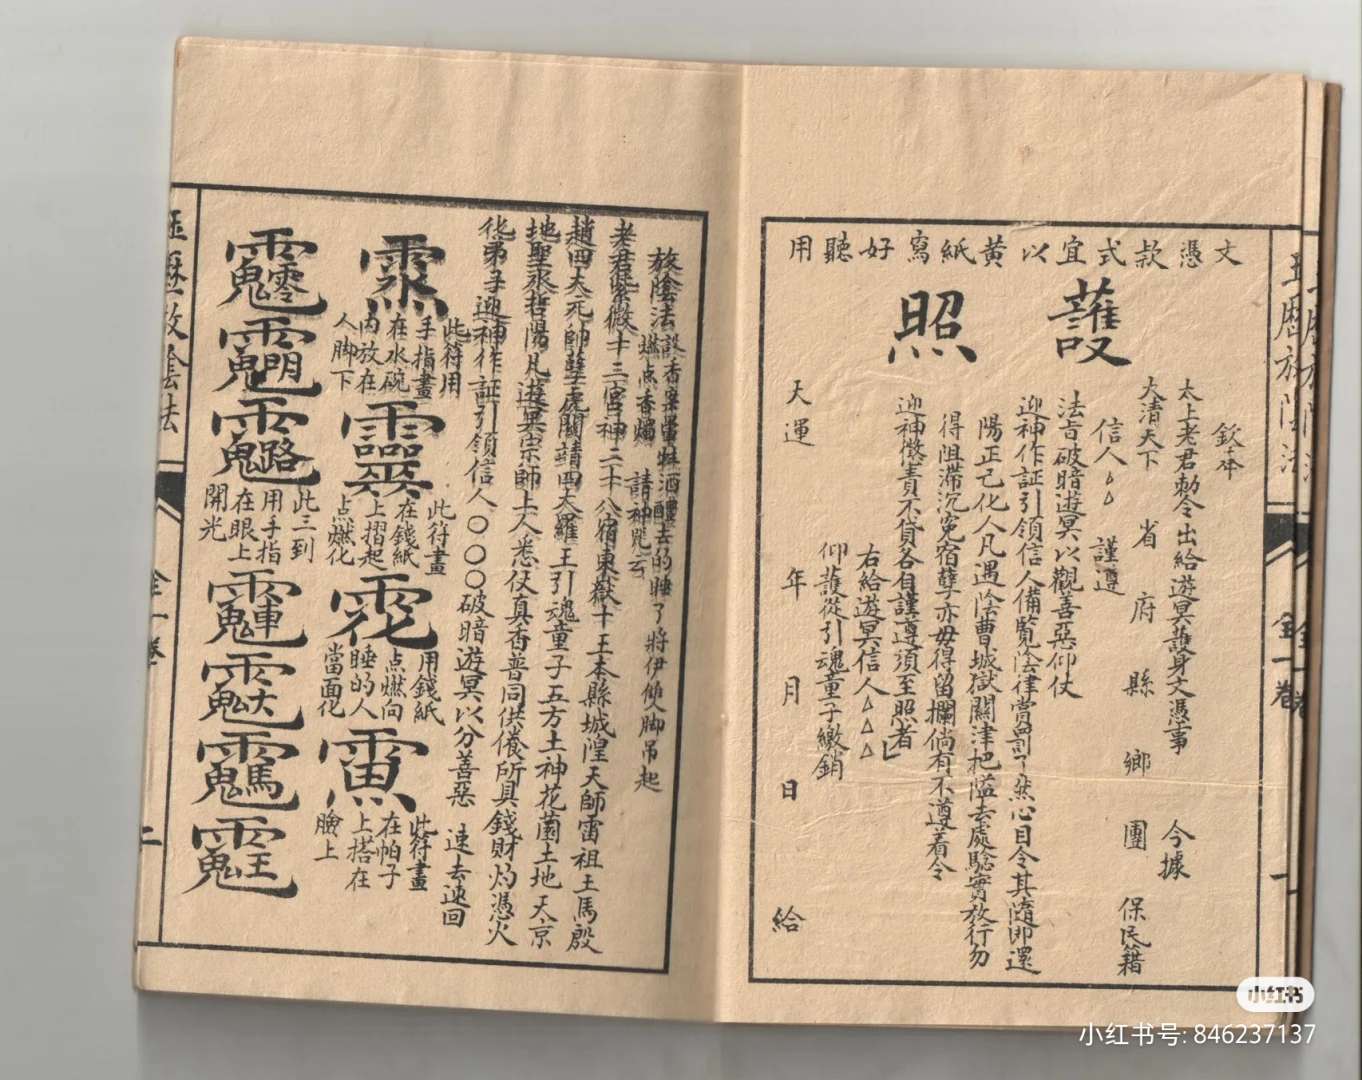 文憑款式宜以黃紙寫好聽用
護照
欽奉
太上老君勅令出給遊冥護身文憑事 今據
大清天下 省 府 縣 鄉 團 保民籍
信人 謹遵
法旨破暗遊冥以觀善惡仰仗
迎神作証引領信人備覽陰律賞罰了然心目令其隨即還
陽正己化人凡遇陰曹城獄關津把隘去處驗實放行勿
得阻滯沉冤宿孽亦毋得留攔倘有不遵着令
迎神懲責不貸各自謹遵須至照者
右給遊冥信人△△△
仰護從引魂童子繳銷
天運 年 月 日 給
放陰法 請神咒云
老君紫微十三宮神二十八宿東嶽十王本縣城隍天師雷祖王馬殷
趙四大元帥孽虎關靖四大羅王引魂童子五方土神花園土地天京
地聖衆哲陽凡遊冥宗師上人悉仗真香普同供養所具錢財灼憑火
化弟子迎神作証引領信人〇〇〇破暗遊冥以分善惡 速去速回
此符用
手指畫
在水碗
內放在
人脚下
此符畫
在錢紙
上摺起
点燃化
用錢紙
点燃向
睡的人
當面化
此符畫
在帕子
上搭在
臉上
此三到
用手指
在眼上
開光
全一卷
二
小红书
小红书号: 846237137